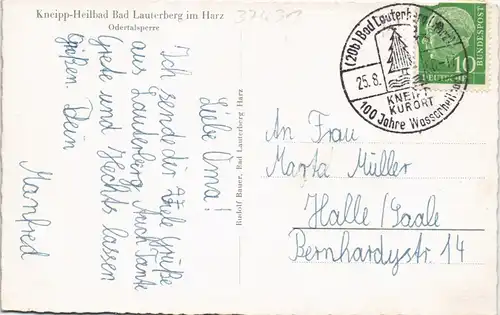 Kneipp-Heilbad Bad Lauterberg im Harz
Odertalsperre
Liebe Oma!
Ich sende dir viele Grüße
aus Lauterberg. Auch Tante
Grete und Hechts lassen
grüßen. Dein
Manfred
Rudolf Bauer, Bad Lauterberg Harz
(20b) Bad Lauterberg
25.8.
KNEIPP
KURORT
100 Jahre Wasserheil
DEUTSCHE
BUNDESPOST
10
An Frau
Marta Müller
Halle/Saale
Bernhardystr 14